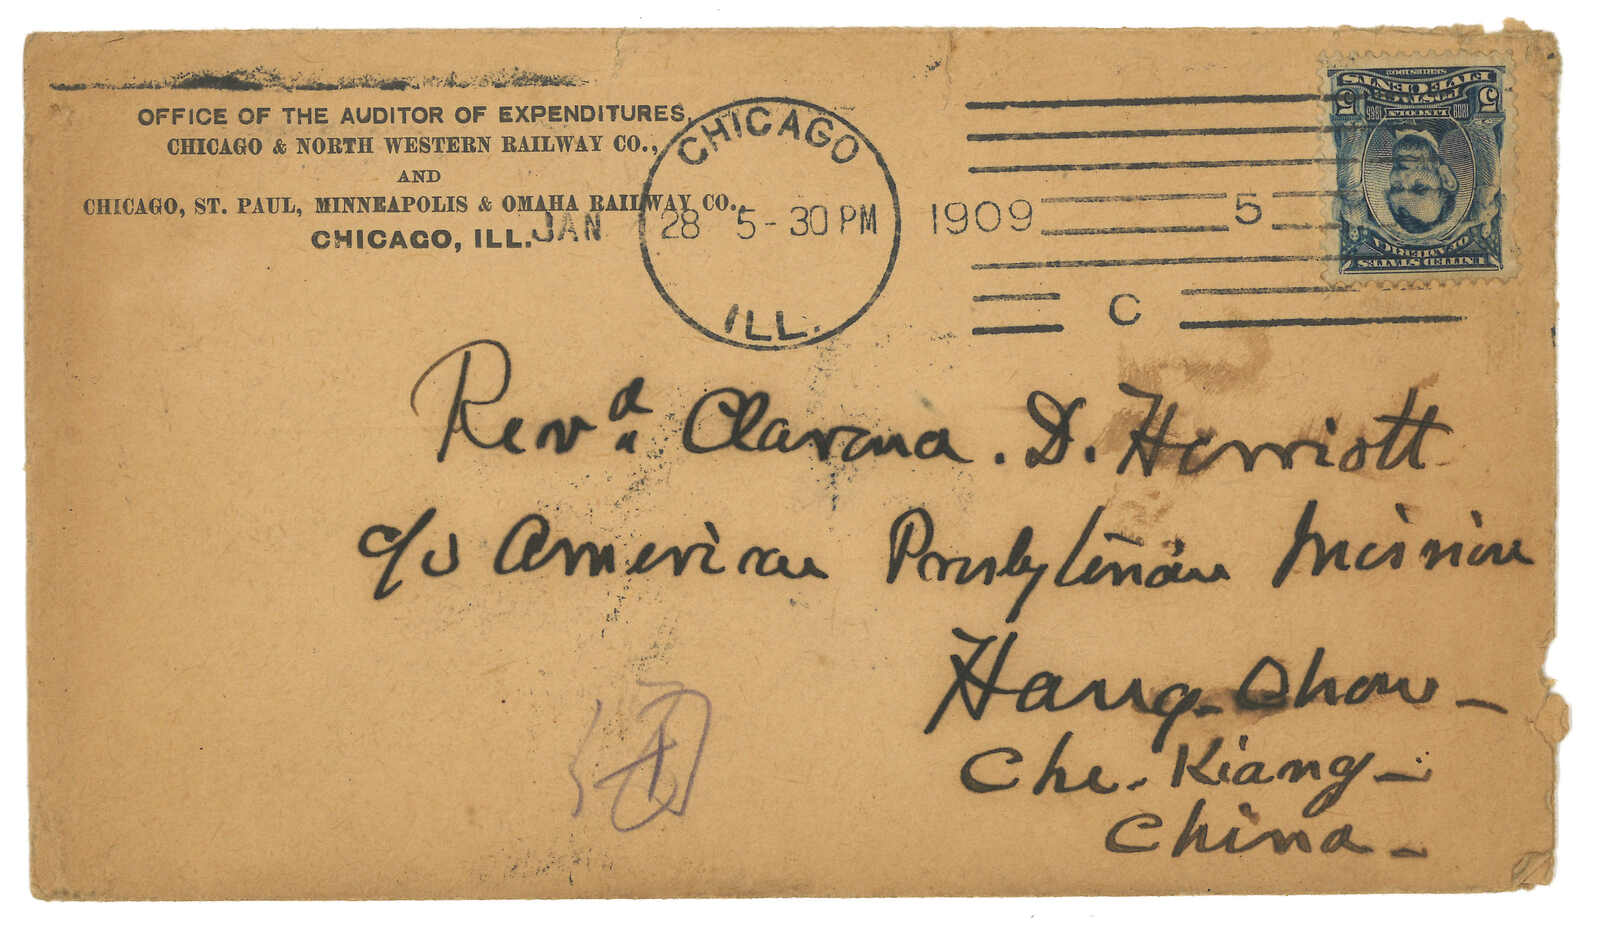 OFFICE OF THE AUDITOR OF EXPENDITURES,
CHICAGO & NORTH WESTERN RAILWAY CO.,
AND
CHICAGO, ST. PAUL, MINNEAPOLIS & OMAHA RAILWAY CO.,
CHICAGO, ILL.
CHICAGO
JAN 28 5-30 PM 1909 5
ILL.
C
SERIES 1902
FIVE CENTS
POSTAGE
5 5
1808 LINCOLN 1865
UNITED STATES
OF AMERICA
Revd D. Herriott
c/o American Presbyterian Mission
Hang-Chow-
Che-Kiang-
China-